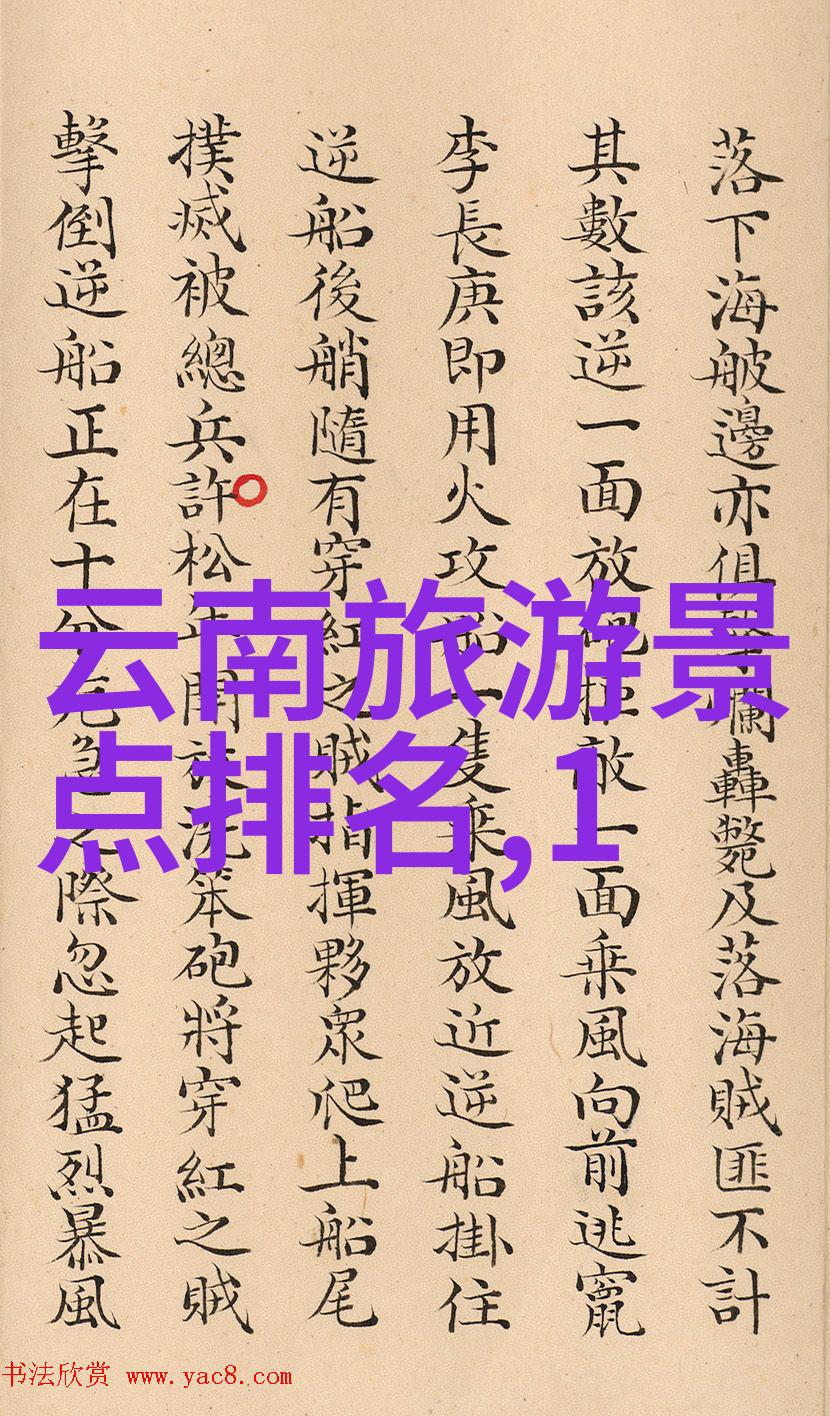 落下海舷邊亦俱擊爛轟斃及落海賊匪不計
其數該逆一面放砲拒敵一面乗風向前逃竄
李長庚即用火攻船一隻乗風放近逆船掛住
逆船後艄隨有穿紅之賊指揮夥眾爬上船尾
撲滅被總兵許松年開放洗笨砲將穿紅之賊
擊倒逆船正在十分危急之際忽起猛烈暴風
云南旅游景
点排名,1
书法欣赏 www.yac8.com